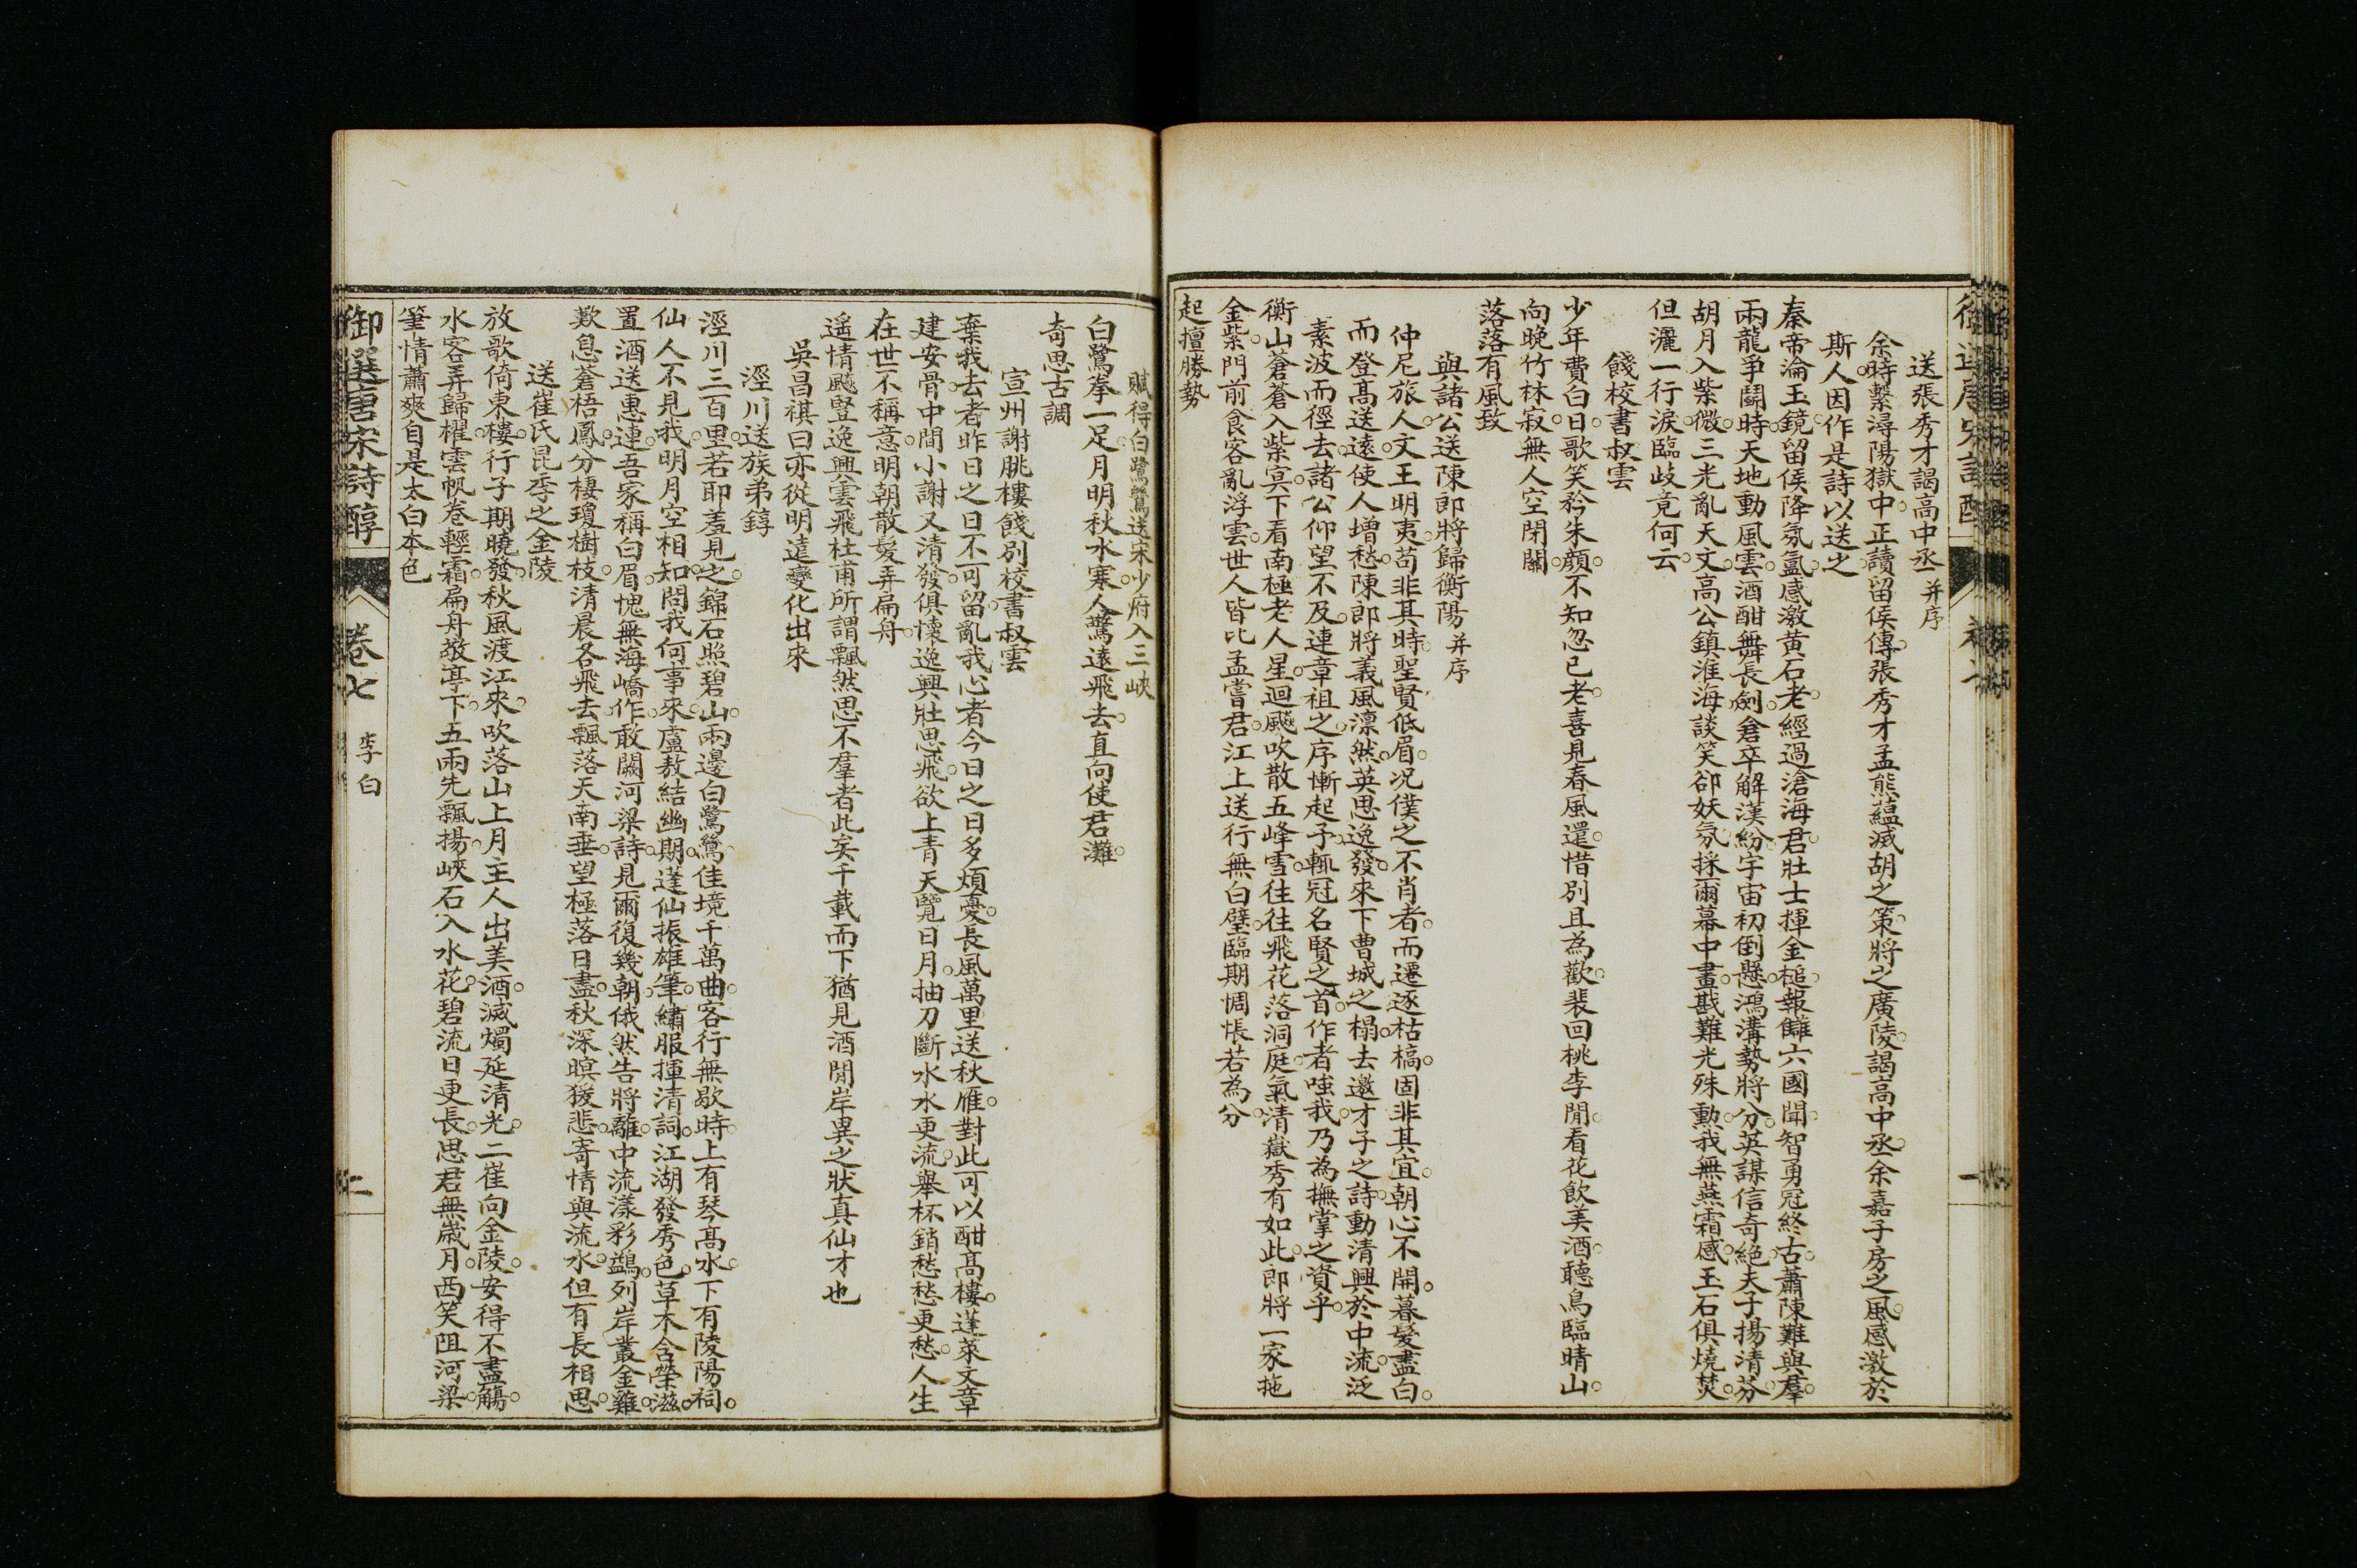 送張秀才謁高中丞 并序
余時繫潯陽獄中正讀留侯傳張秀才孟熊蘊滅胡之策將之廣陵謁高中丞余嘉子房之風感激於
斯人因作是詩以送之
秦帝淪玉鏡留侯降氛氳感激黃石老經過滄海君壯士揮金槌報讎六國聞智勇冠終古蕭陳難與羣
兩龍爭鬭時天地動風雲酒酣舞長劍倉卒解漢紛宇宙初倒懸鴻溝勢將分英謀信奇絕夫子揚清芬
胡月入紫微三光亂天文高公鎮淮海談笑卻妖氛採爾幕中畫戡難光殊勳我無燕霜感玉石俱燒焚
但灑一行淚臨歧竟何云
餞校書叔雲
少年費白日歌笑矜朱顏不知忽已老喜見春風還惜別且為歡裴回桃李閒看花飲美酒聽鳥臨晴山
向晚竹林寂無人空閉關
落落有風致
與諸公送陳郎將歸衡陽 并序
仲尼旅人文王明夷苟非其時聖賢低眉况僕之不肖者而遷逐枯槁固非其宜朝心不開暮髮盡白
而登高送遠使人增愁陳郎將義風凛然英思逸發來下曹城之榻去邀才子之詩動清興於中流泛
素波而徑去諸公仰望不及連章祖之序慚起予輒冠名賢之首作者嗤我乃為撫掌之資乎
衡山蒼蒼入紫冥下看南極老人星迴飈吹散五峰雪往往飛花落洞庭氣清嶽秀有如此郎將一家拖
金紫門前食客亂浮雲世人皆比孟嘗君江上送行無白璧臨期惆悵若為分
起擅勝勢
賦得白鷺鷥送宋少府入三峽
白鷺拳一足月明秋水寒人驚遠飛去直向使君灘
奇思古調
宣州謝朓樓餞別校書叔雲
棄我去者昨日之日不可留亂我心者今日之日多煩憂長風萬里送秋雁對此可以酣高樓蓬萊文章
建安骨中間小謝又清發俱懷逸興壯思飛欲上青天覽日月抽刀斷水水更流舉杯銷愁愁更愁人生
在世不稱意明朝散髮弄扁舟
遥情飈豎逸興雲飛杜甫所謂飄然思不羣者此矣千載而下猶見酒閒岸異之狀真仙才也
吳昌祺曰亦從明遠變化出來
涇川送族弟錞
涇川三百里若耶羞見之錦石照碧山兩邊白鷺鷥佳境千萬曲客行無歇時上有琴高水下有陵陽祠
仙人不見我明月空相知問我何事來盧敖結幽期蓬仙振雄筆繡服揮清詞江湖發秀色草木含榮滋
置酒送惠連吾家稱白眉愧無海嶠作敢闕河梁詩見爾復幾朝俄然告將離中流漾彩鷁列岸叢金羈
歎息蒼梧鳳分棲瓊樹枝清晨各飛去飄落天南垂望極落日盡秋深暝猨悲寄情與流水但有長相思
送崔氏昆季之金陵
放歌倚東樓行子期曉發秋風渡江來吹落山上月主人出美酒滅燭延清光二崔向金陵安得不盡觴
水客弄歸櫂雲帆卷輕霜扁舟敬亭下五兩先飄揚峽石入水花碧流日更長思君無歲月西笑阻河梁
筆情蕭爽自是太白本色
御選唐宋詩醇 卷七 李白 二